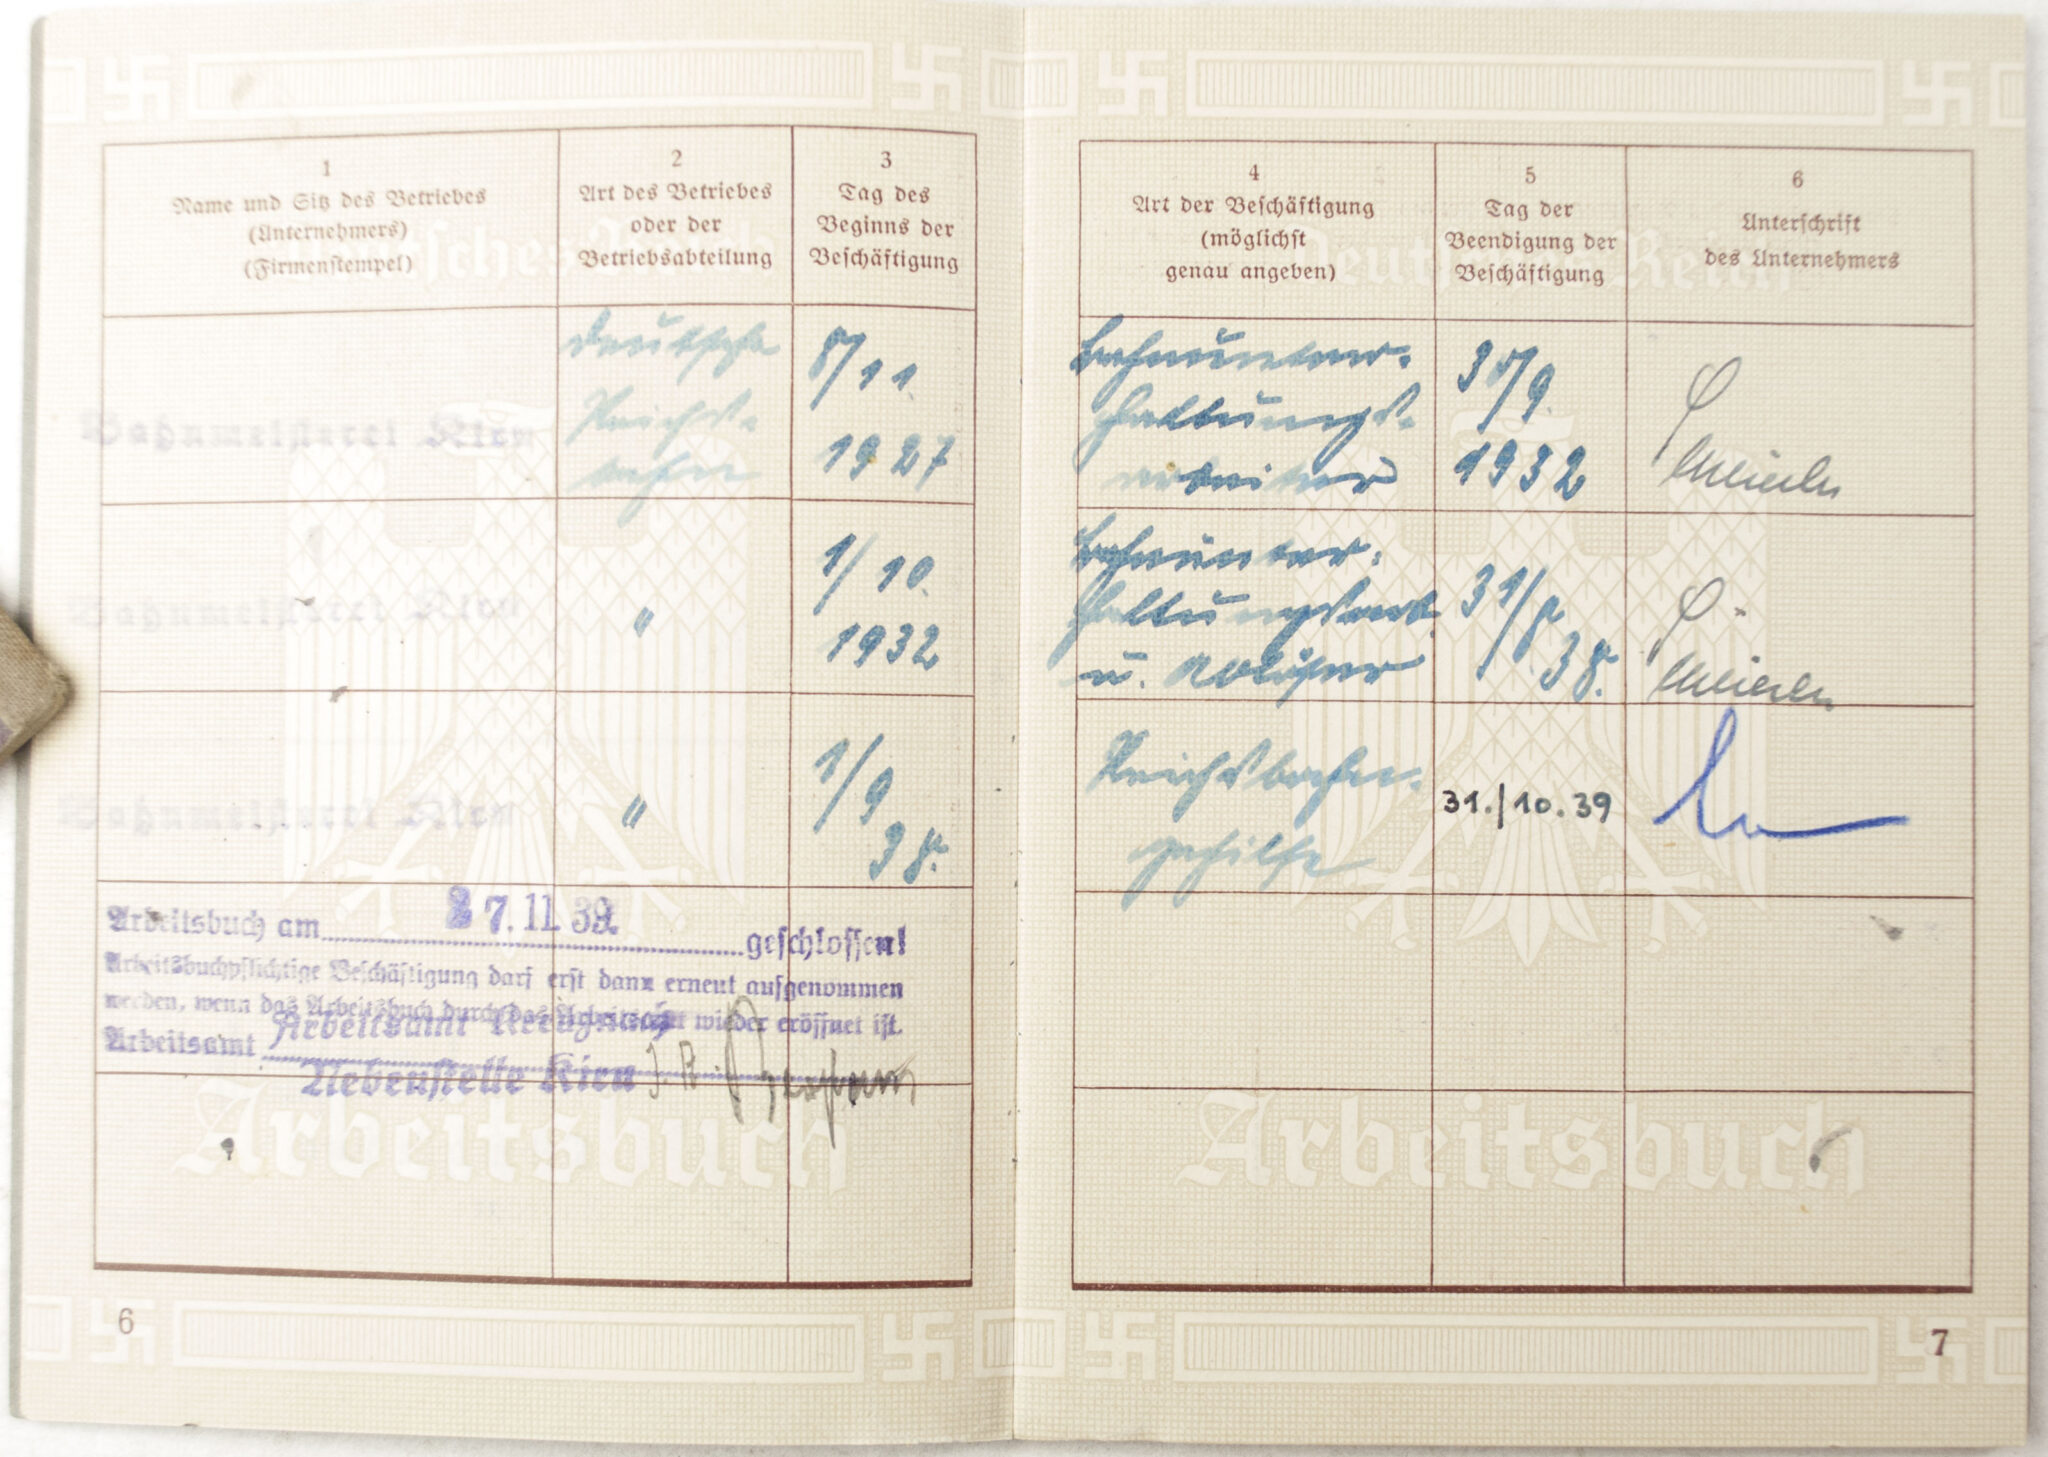 1
Name und Sitz des Betriebes
(Unternehmers)
(Firmenstempel)
2
Art des Betriebes
oder der
Betriebsabteilung
3
Tag des
Beginns der
Beschäftigung
Bahnmeisterei Kirn
Deutsche
Reichs-
bahn
8/11
1927
Bahnmeisterei Kirn
"
1/10.
1932
Bahnmeisterei Kirn
"
1/9
38.
Arbeitsbuch am 27.11.39. geschlossen!
Arbeitsbuchpflichtige Beschäftigung darf erst dann erneut aufgenommen
werden, wenn das Arbeitsbuch durch das Arbeitsamt wieder eröffnet ist.
Arbeitsamt Arbeitsamt Kreuznach
Nebenstelle Kirn
Arbeitsbuch
6
4
Art der Beschäftigung
(möglichst
genau angeben)
5
Tag der
Beendigung der
Beschäftigung
6
Unterschrift
des Unternehmers
Deutsches Reich
Bahnunter-
haltungs-
arbeiter
30/9.
1932
Bahnunter-
haltungsarb.
u. Ablöser
31/8.
38.
Reichsbahn-
gehilfe
31./10.39
Arbeitsbuch
7